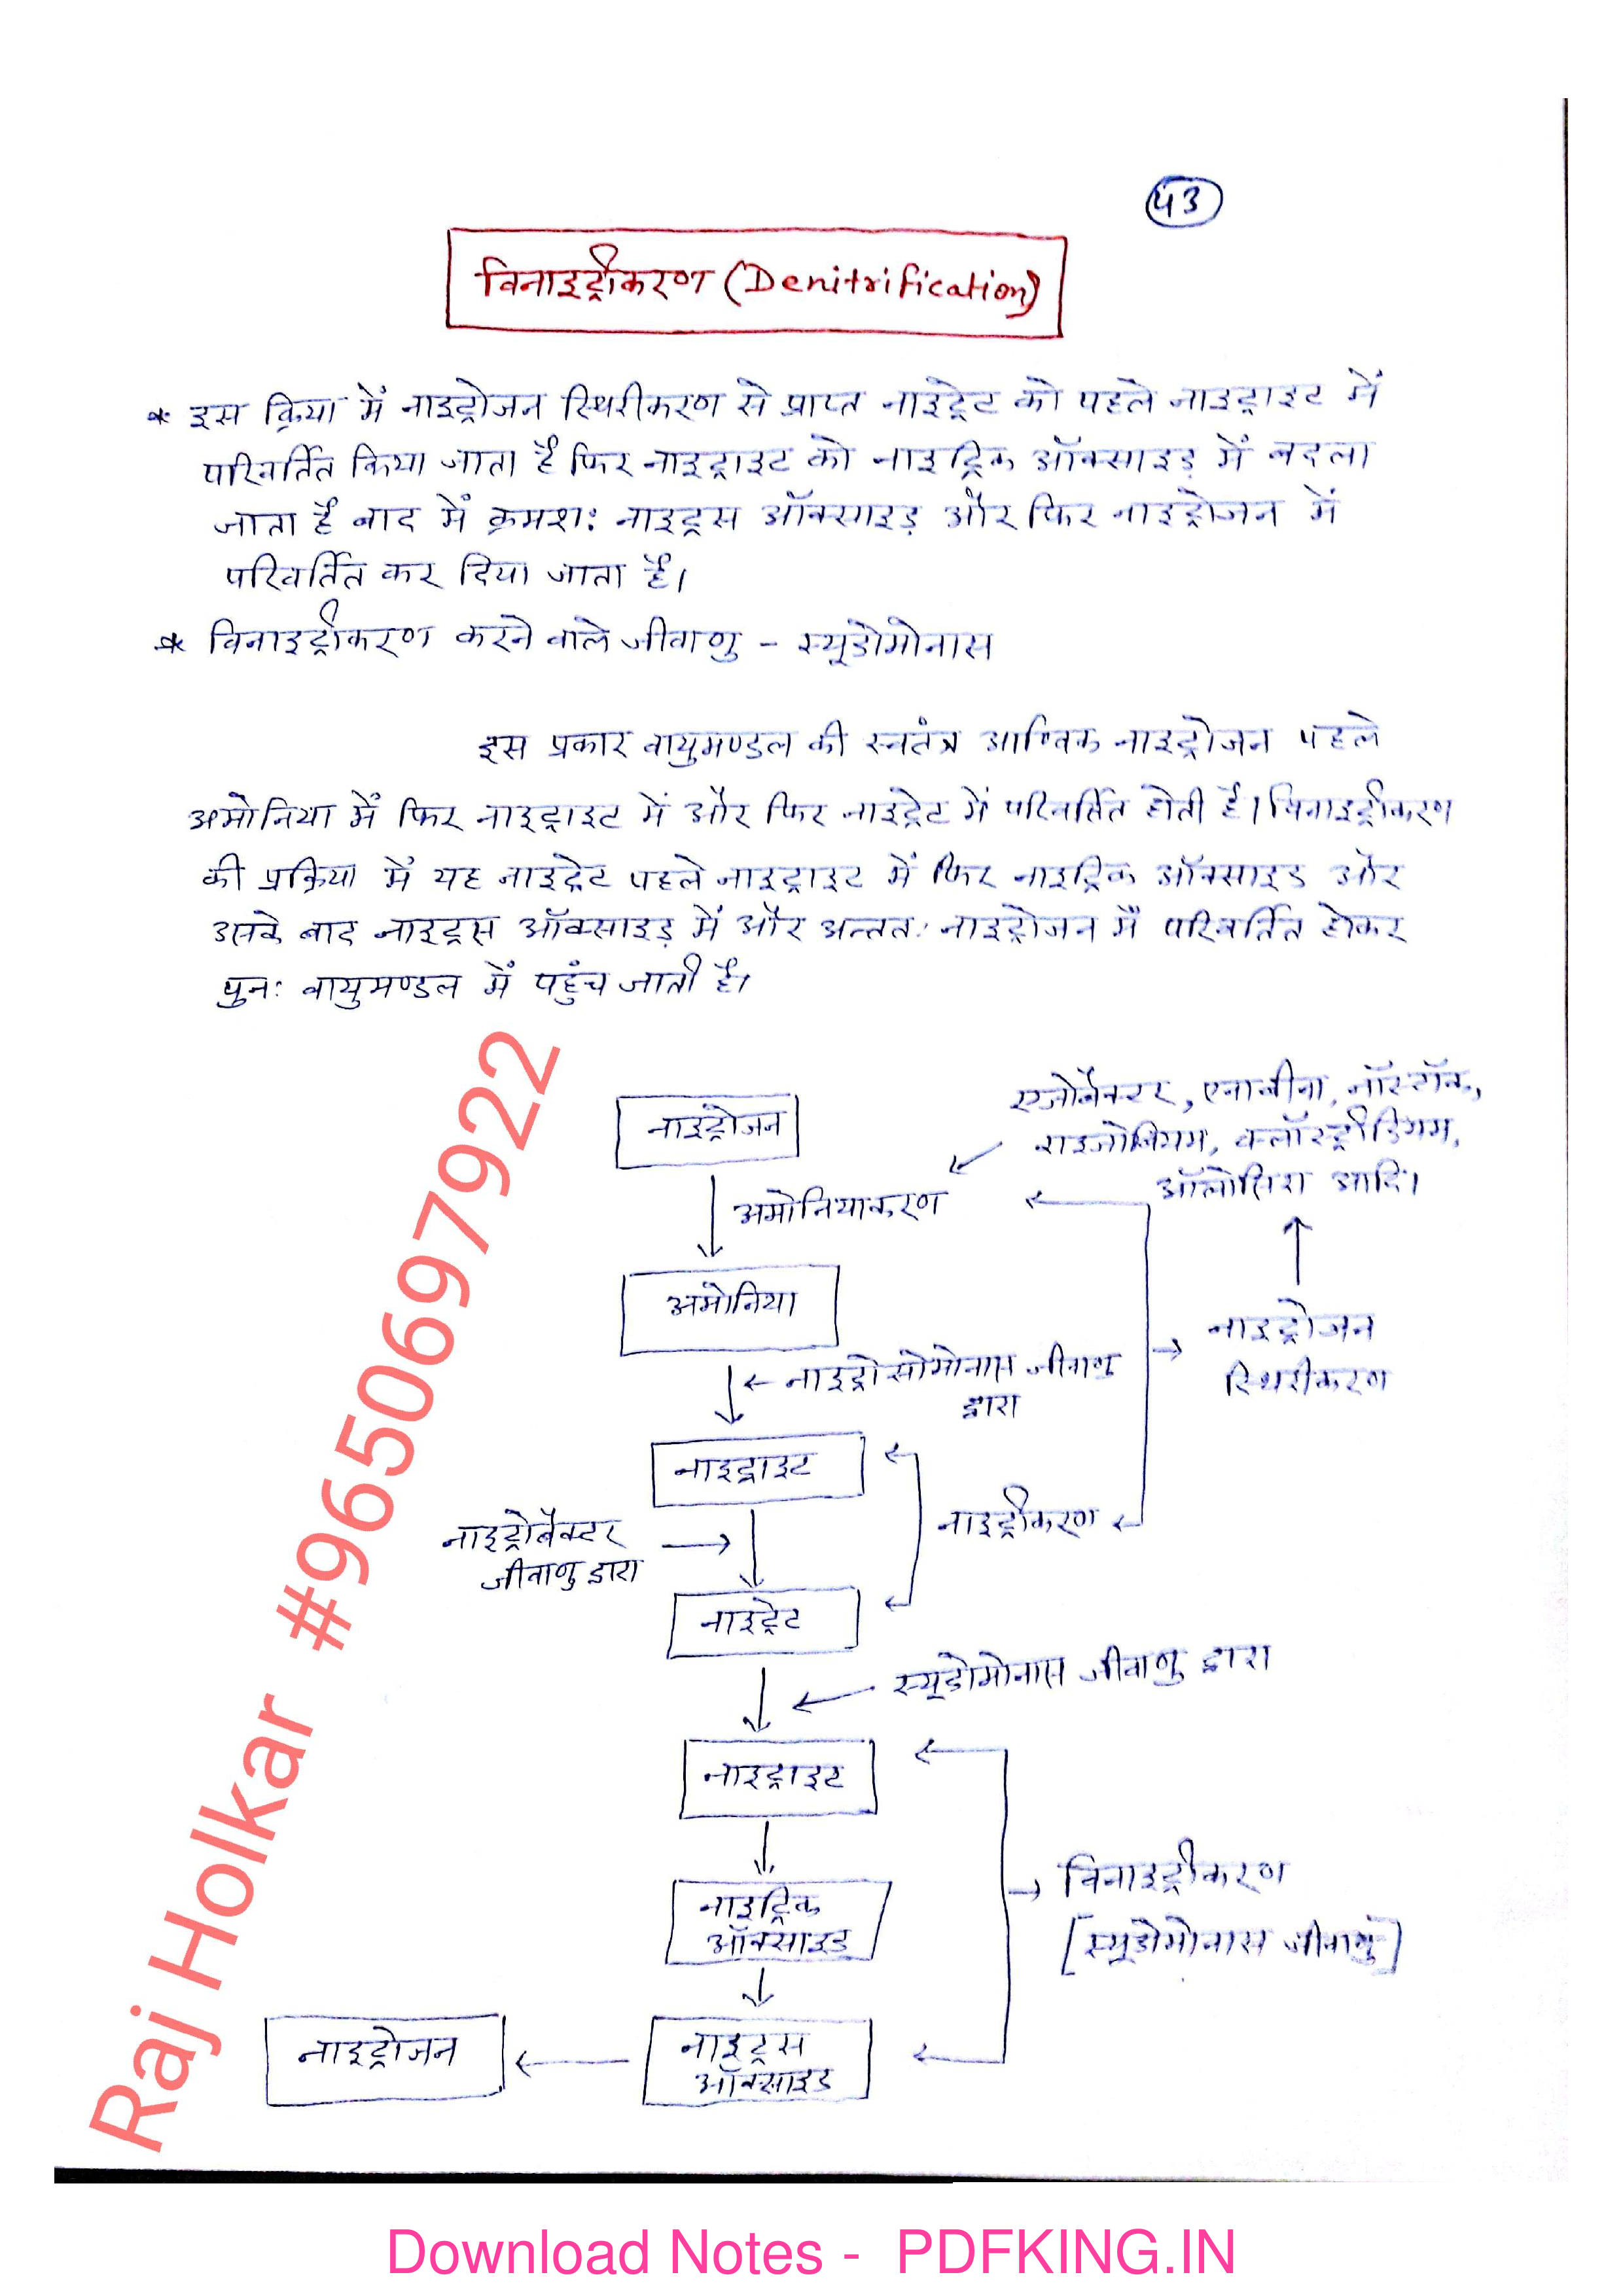 43
विनाइट्रीकरण (Denitrification)
* इस क्रिया में नाइट्रोजन स्थिरीकरण से प्राप्त नाइट्रेट को पहले नाइट्राइट में
परिवर्तित किया जाता है फिर नाइट्राइट को नाइट्रिक ऑक्साइड़ में बदला
जाता है बाद में क्रमशः नाइट्रस ऑक्साइड़ और फिर नाइट्रोजन में
परिवर्तित कर दिया जाता है।
* विनाइट्रीकरण करने वाले जीवाणु - स्यूडोमोनास
इस प्रकार वायुमण्डल की स्वतंत्र आण्विक नाइट्रोजन पहले
अमोनिया में फिर नाइट्राइट में और फिर नाइट्रेट में परिवर्तित होती है। विनाइट्रीकरण
की प्रक्रिया में यह नाइट्रेट पहले नाइट्राइट में फिर नाइट्रिक ऑक्साइड और
उसके बाद नाइट्रस ऑक्साइड़ में और अन्ततः नाइट्रोजन में परिवर्तित होकर
पुनः वायुमण्डल में पहुंच जाती है।
एजोबैक्टर, एनाबीना, नॉस्टॉक,
नाइट्रोजन
राइजोबियम, क्लॉस्ट्रीडियम,
ऑलोसिरा आदि।
अमोनियाकरण
अमोनिया
नाइट्रोजन
स्थिरीकरण
नाइट्रोसोमोनास जीवाणु
द्वारा
नाइट्राइट
नाइट्रीकरण
नाइट्रोबैक्टर
जीवाणु द्वारा
नाइट्रेट
स्यूडोमोनास जीवाणु द्वारा
नाइट्राइट
विनाइट्रीकरण
[स्यूडोमोनास जीवाणु]
नाइट्रिक
ऑक्साइड
नाइट्रोजन
नाइट्रस
ऑक्साइड
Raj Holkar #9650697922
Download Notes - PDFKING.IN